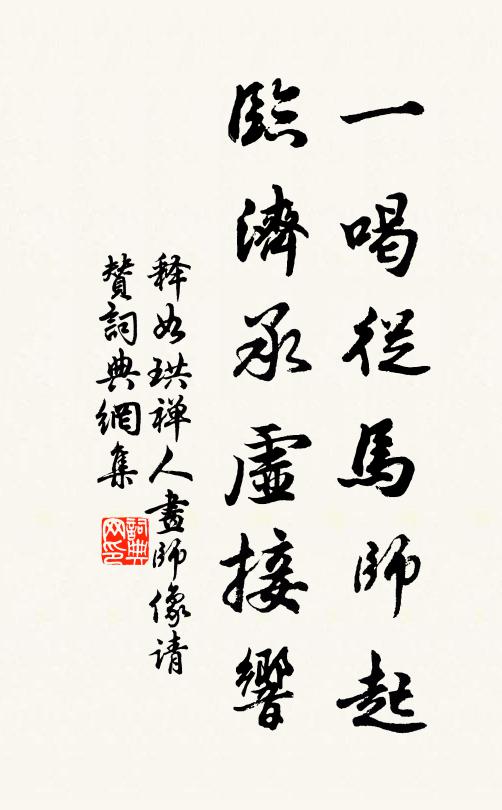 一喝從馬師起
臨濟承虛接響
释如珙禅人畫師像请
赞詞典網集
詞典
网印